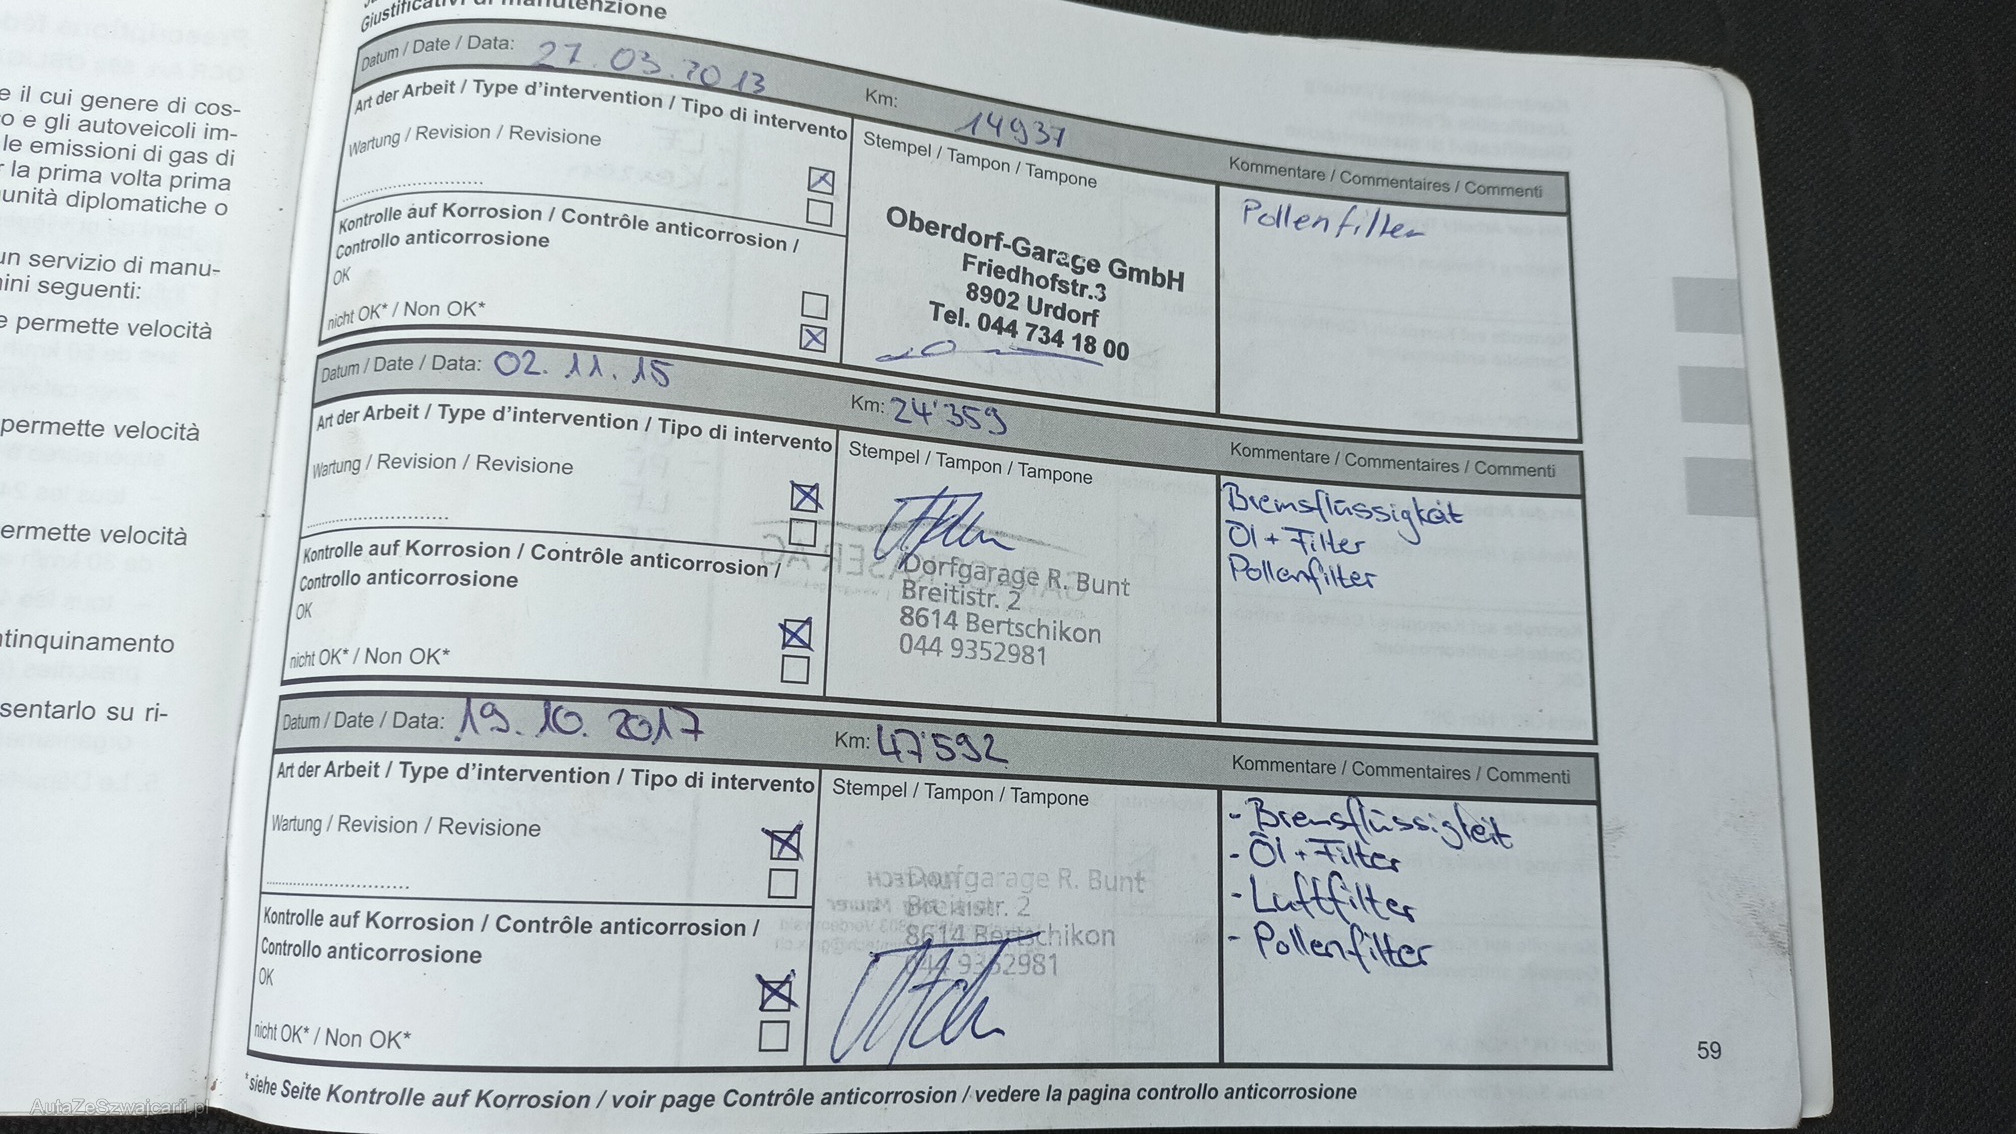 Giustificativi di manutenzione
e il cui genere di cos-
o e gli autoveicoli im-
le emissioni di gas di
la prima volta prima
unità diplomatiche o
un servizio di manu-
ini seguenti:
e permette velocità
permette velocità
ermette velocità
tinquinamento
sentarlo su ri-
Datum / Date / Data: 27.03.2013
Km: 14937
Art der Arbeit / Type d'intervention / Tipo di intervento
Stempel / Tampon / Tampone
Kommentare / Commentaires / Commenti
Wartung / Revision / Revisione
Pollenfilter
Kontrolle auf Korrosion / Contrôle anticorrosion /
Controllo anticorrosione
OK
nicht OK* / Non OK*
Oberdorf-Garage GmbH
Friedhofstr.3
8902 Urdorf
Tel. 044 734 18 00
Datum / Date / Data: 02.11.15
Km: 24'359
Art der Arbeit / Type d'intervention / Tipo di intervento
Stempel / Tampon / Tampone
Kommentare / Commentaires / Commenti
Wartung / Revision / Revisione
Bremsflüssigkeit
Öl + Filter
Pollenfilter
Kontrolle auf Korrosion / Contrôle anticorrosion /
Controllo anticorrosione
OK
nicht OK* / Non OK*
Dorfgarage R. Bunt
Breitistr. 2
8614 Bertschikon
044 9352981
Datum / Date / Data: 19.10.2017
Km: 47'592
Art der Arbeit / Type d'intervention / Tipo di intervento
Stempel / Tampon / Tampone
Kommentare / Commentaires / Commenti
Wartung / Revision / Revisione
- Bremsflüssigkeit
- Öl + Filter
- Luftfilter
- Pollenfilter
Kontrolle auf Korrosion / Contrôle anticorrosion /
Controllo anticorrosione
OK
nicht OK* / Non OK*
Dorfgarage R. Bunt
Breitistr. 2
8614 Bertschikon
044 9352981
*siehe Seite Kontrolle auf Korrosion / voir page Contrôle anticorrosion / vedere la pagina controllo anticorrosione
59
AutaZeSzwajcarii.pl